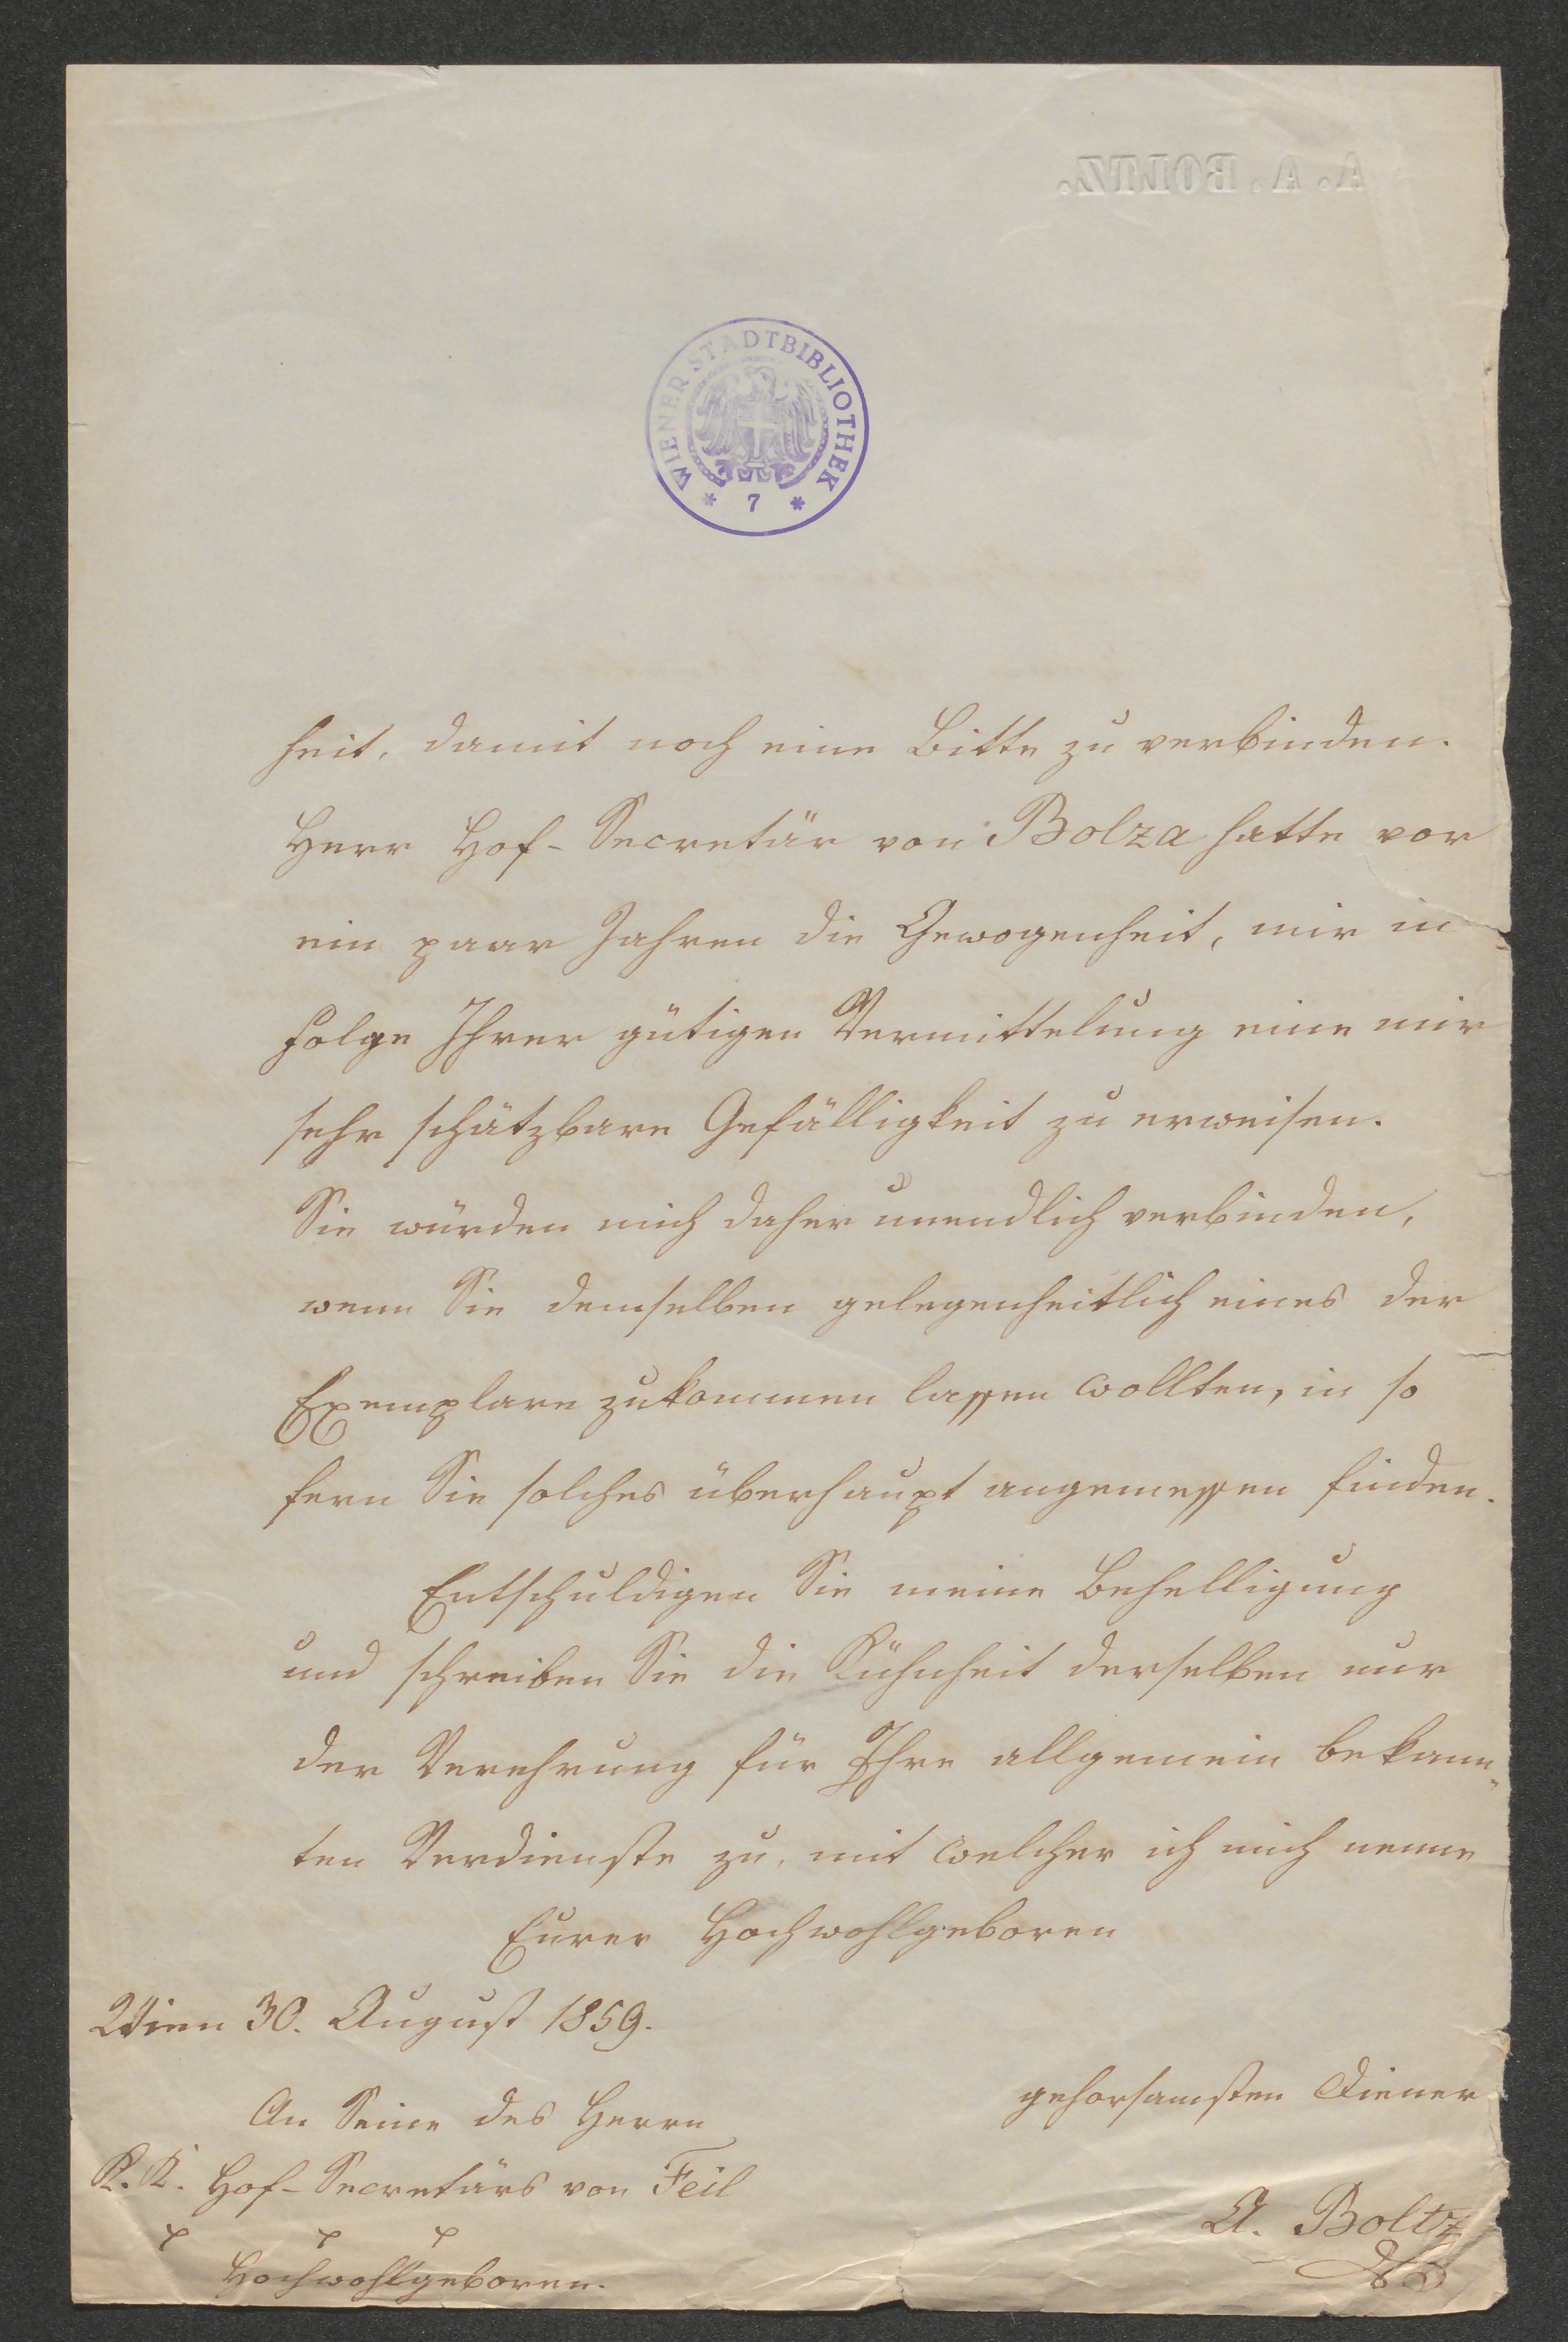 A. A. BOLTZ.
WIENER STADTBIBLIOTHEK
* 7 *
heit, damit noch eine Bitte zu verbinden.
Herr Hof-Secretär von Bolza hatte vor
ein paar Jahren die Gewogenheit, mir in
Folge Ihrer gütigen Vermittelung eine mir
sehr schätzbare Gefälligkeit zu erweisen.
Sie würden mich daher unendlich verbinden,
wenn Sie demselben gelegenheitlich eines der
Exemplare zukommen lassen wollten, in so
fern Sie solches überhaupt angemessen finden.
Entschuldigen Sie meine Behelligung
und schreiben Sie die Kühnheit derselben nur
der Verehrung für Ihre allgemein bekann„
ten Verdienste zu, mit welcher ich mich nenne
Eurer Hochwohlgeboren
Wien 30. August 1859.
gehorsamsten Diener
An Seine des Herrn
K. K. Hof-Secretärs von Feil
A. Boltz
Hochwohlgeboren.